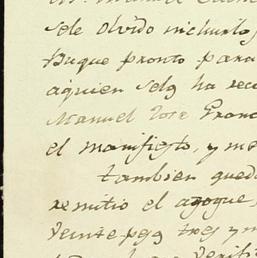 sele olvidó incluirlo,
Buque pronto para
aquien selo ha rec
Manuel Jose Franc
el manifiesto, y me
tambien qued
remitio el azogue,
veinte tres y m